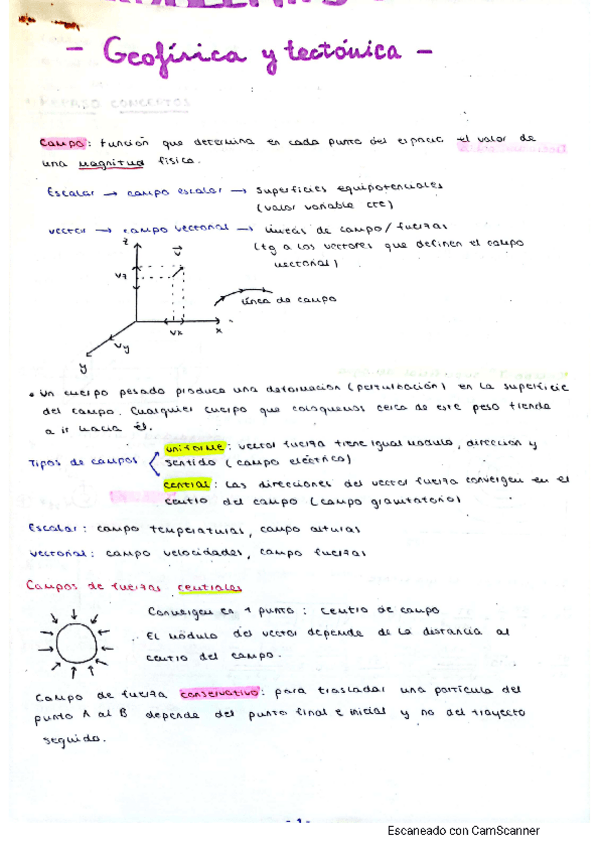 - Geofísica y tectónica -
REPASO CONCEPTOS
Campo: función que determina en cada punto del espacio el valor de
una magnitud física.
Escalar → campo escalar → superficies equipotenciales
(valor variable cte)
vector → campo vectorial → líneas de campo/fuerzas
(tg a los vectores que definen el campo
vectorial)
z
v
vz
línea de campo
vx
x
vy
y
• Un cuerpo pesado produce una deformación (perturbación) en la superficie
del campo. Cualquier cuerpo que coloquemos cerca de este peso tiende
a ir hacia él.
Tipos de campos
uniforme: vector fuerza tiene igual modulo, dirección y
sentido (campo eléctrico)
central: las direcciones del vector fuerza convergen en el
centro del campo (campo gravitatorio)
Escalar: campo temperaturas, campo alturas
vectorial: campo velocidades, campo fuerzas
Campos de fuerzas centrales
Convergen en 1 punto: centro de campo
El módulo del vector depende de la distancia al
centro del campo.
Campo de fuerza conservativo: para trasladar una partícula del
punto A al B depende del punto final e inicial y no del trayecto
seguido.
- 1 -
Escaneado con CamScanner